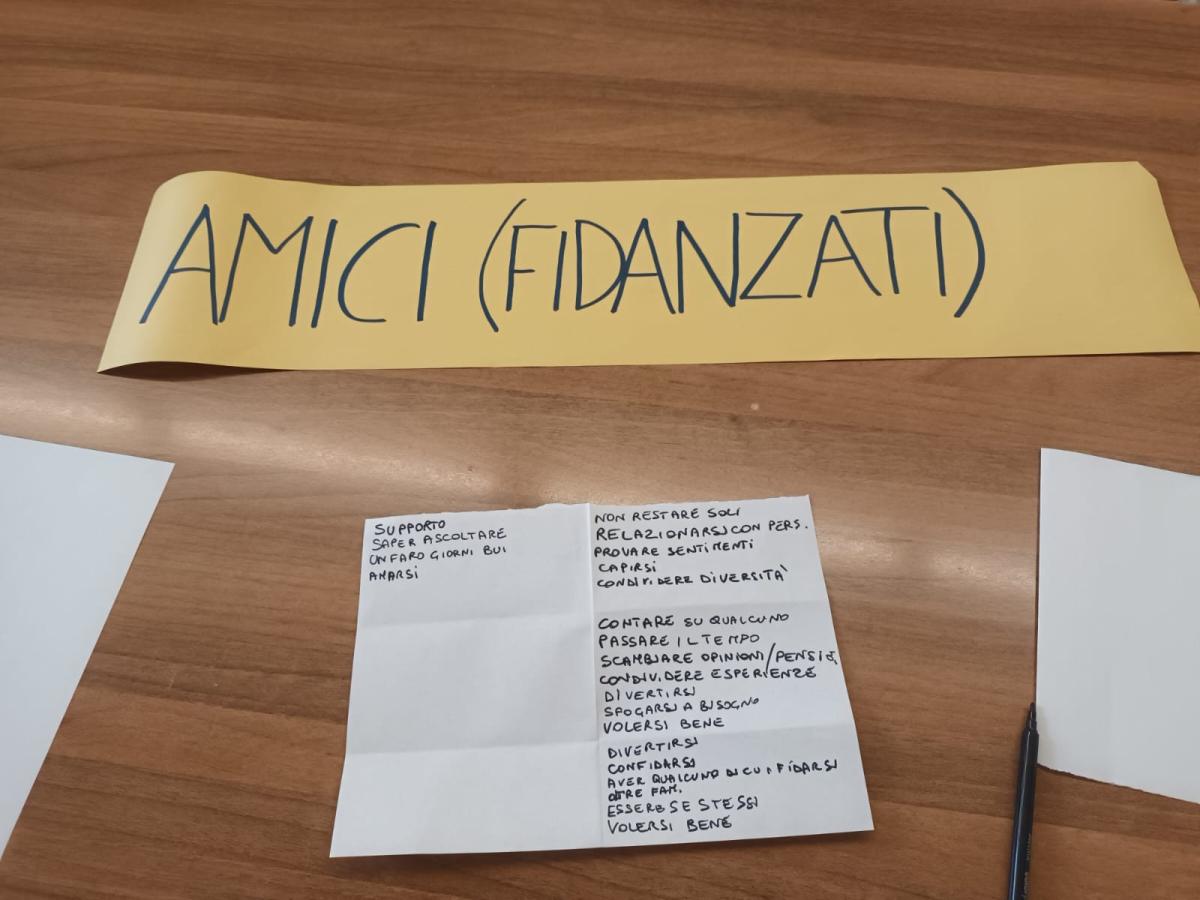 AMICI (FIDANZATI)
SUPPORTO
SAPER ASCOLTARE
UN FARO GIORNI BUI
AMARSI
NON RESTARE SOLI
RELAZIONARSI CON PERS.
PROVARE SENTIMENTI
CAPIRSI
CONDIVIDERE DIVERSITÀ
CONTARE SU QUALCUNO
PASSARE IL TEMPO
SCAMBIARE OPINIONI/PENSIE.
CONDIVIDERE ESPERIENZE
DIVERTIRSI
SFOGARSI A BISOGNO
VOLERSI BENE
DIVERTIRSI
CONFIDARSI
AVER QUALCUNO DI CUI FIDARSI
OLTRE FAM.
ESSERE SE STESSI
VOLERSI BENE